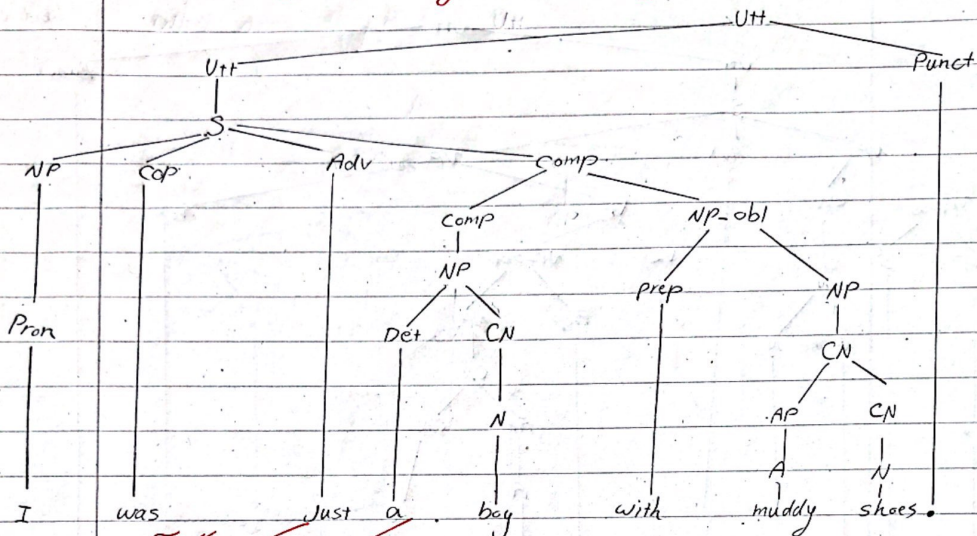 Utt
Utt Punct
S
NP Cop Adv Comp
Comp NP-obl
NP Prep NP
Pron Det CN CN
N AP CN
A N
I was Just a boy with muddy shoes .